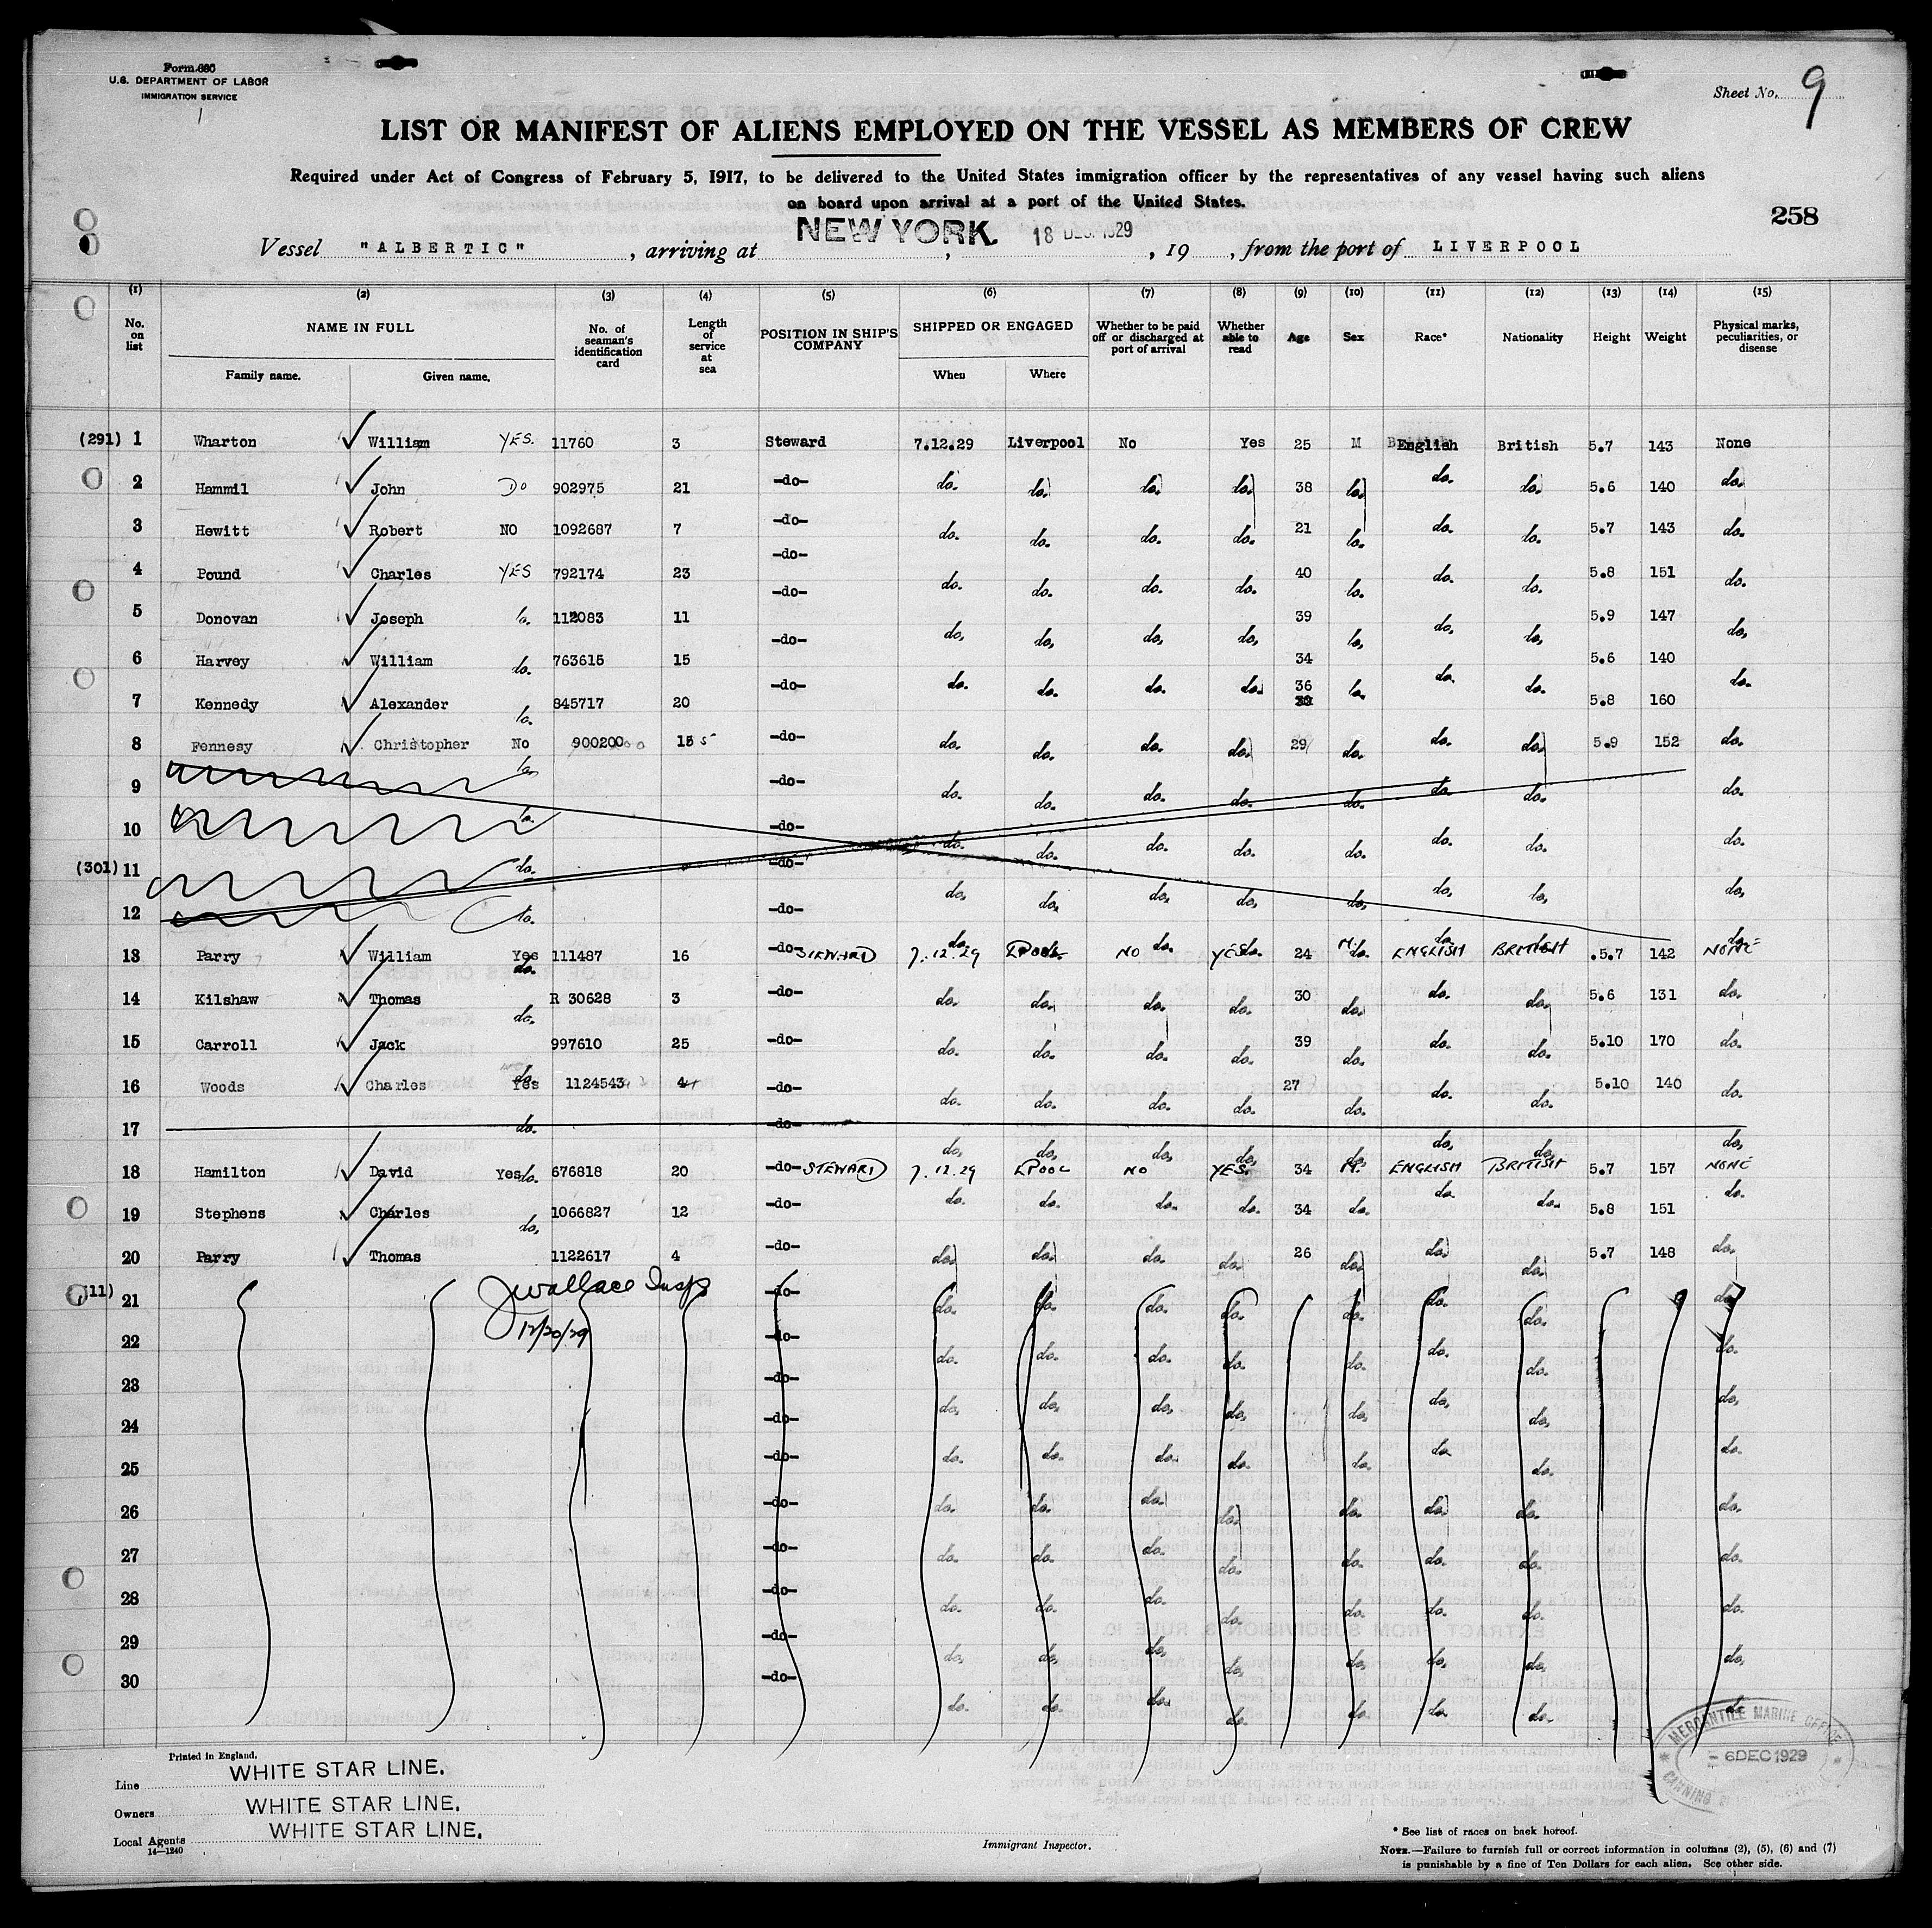 Form 680
U.S. DEPARTMENT OF LABOR
IMMIGRATION SERVICE
Sheet No. 9
LIST OR MANIFEST OF ALIENS EMPLOYED ON THE VESSEL AS MEMBERS OF CREW
Required under Act of Congress of February 5, 1917, to be delivered to the United States immigration officer by the representatives of any vessel having such aliens
on board upon arrival at a port of the United States.
258
Vessel "ALBERTIC", arriving at NEW YORK. 18 DEC 1929, 19 , from the port of LIVERPOOL
(1) (2) (3) (4) (5) (6) (7) (8) (9) (10) (11) (12) (13) (14) (15)
No. on list NAME IN FULL Family name. Given name. No. of seaman's identification card Length of service at sea POSITION IN SHIP'S COMPANY SHIPPED OR ENGAGED When Where Whether to be paid off or discharged at port of arrival Whether able to read Age Sex Race* Nationality Height Weight Physical marks, peculiarities, or disease
(291) 1 Wharton William YES. 11760 3 Steward 7.12.29 Liverpool No Yes 25 M English British 5.7 143 None
2 Hammil John Do 902975 21 -do- do. do. do. do. 38 do. do. do. 5.6 140 do.
3 Hewitt Robert NO 1092687 7 -do- do. do. do. do. 21 do. do. do. 5.7 143 do.
4 Pound Charles YES 792174 23 -do- do. do. do. do. 40 do. do. do. 5.8 151 do.
5 Donovan Joseph do. 112083 11 -do- do. do. do. do. 39 do. do. do. 5.9 147 do.
6 Harvey William do. 763615 15 -do- do. do. do. do. 34 do. do. do. 5.6 140 do.
7 Kennedy Alexander do. 845717 20 -do- do. do. do. do. 36 do. do. do. 5.8 160 do.
8 Fennesy Christopher No 900200 15 -do- do. do. do. do. 29 do. do. do. 5.9 152 do.
9 do. -do- do. do. do. do. do. do. do. do.
10 do. -do- do. do. do. do. do. do. do. do.
(301) 11 do. -do- do. do. do. do. do. do. do. do.
12 do. -do- do. do. do. do. do. do. do. do.
13 Parry William Yes 111487 16 -do- STEWARD 7.12.29 LPOOL NO YES 24 M. ENGLISH BRITISH 5.7 142 NONE
14 Kilshaw Thomas do. R 30628 3 -do- do. do. do. do. 30 do. do. do. 5.6 131 do.
15 Carroll Jack 997610 25 -do- do. do. do. do. 39 do. do. do. 5.10 170 do.
16 Woods Charles Yes 1124543 4 -do- do. do. do. do. 27 do. do. do. 5.10 140 do.
17 do. -do- do. do. do. do. do. do. do. do.
18 Hamilton David Yes do. 676818 20 -do- STEWARD 7.12.29 LPOOL NO YES. 34 M. ENGLISH BRITISH 5.7 157 NONE
19 Stephens Charles do. 1066827 12 -do- do. do. do. do. 34 do. do. do. 5.8 151 do.
20 Parry Thomas 1122617 4 -do- do. do. do. do. 26 do. do. do. 5.7 148 do.
(11) 21 JWallace Insp -do- do. do. do. do. do. do. do. do.
12/20/29
22 -do- do. do. do. do. do. do. do. do.
23 -do- do. do. do. do. do. do. do. do.
24 -do- do. do. do. do. do. do. do. do.
25 -do- do. do. do. do. do. do. do. do.
26 -do- do. do. do. do. do. do. do. do.
27 -do- do. do. do. do. do. do. do. do.
28 -do- do. do. do. do. do. do. do. do.
29 -do- do. do. do. do. do. do. do. do.
30 -do- do. do. do. do. do. do. do. do.
MERCANTILE MARINE OFFICE
- 6 DEC 1929
CANNING
Printed in England.
Line WHITE STAR LINE.
Owners WHITE STAR LINE.
Local Agents WHITE STAR LINE.
14-1240
Immigrant Inspector.
* See list of races on back hereof.
NOTE.—Failure to furnish full or correct information in columns (2), (5), (6) and (7)
is punishable by a fine of Ten Dollars for each alien. See other side.